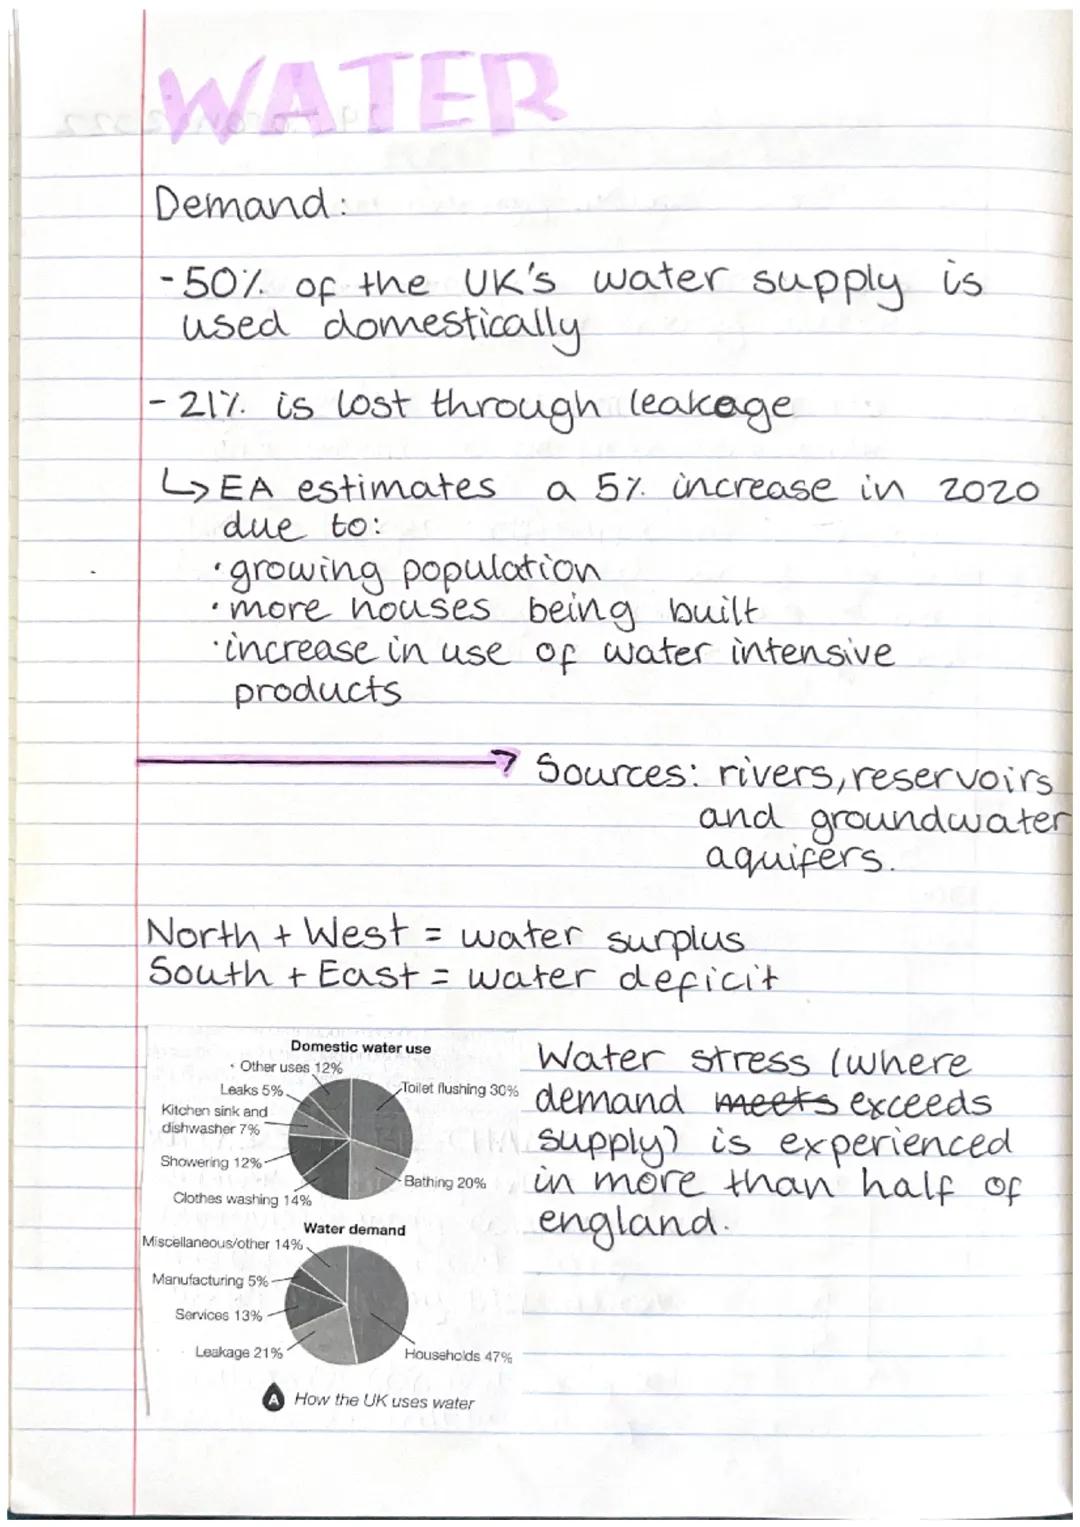 WATER
Demand:
-50% of the UK's water supply is
used domestically
- 21% is lost through leakage
↳ EA estimates a 5% increase in 2020
due to:
• growing population
• more houses being built
• increase in use of water intensive
products
→ Sources: rivers, reservoirs
and groundwater
aquifers.
North + West = water surplus
South + East = water deficit
Domestic water use
Other uses 12%
Leaks 5%
Toilet flushing 30%
Kitchen sink and
dishwasher 7%
Showering 12%
Bathing 20%
Clothes washing 14%
Water demand
Miscellaneous/other 14%
Manufacturing 5%
Services 13%
Leakage 21%
Households 47%
A How the UK uses water
Water stress (where
demand meets exceeds
supply) is experienced
in more than half of
england.